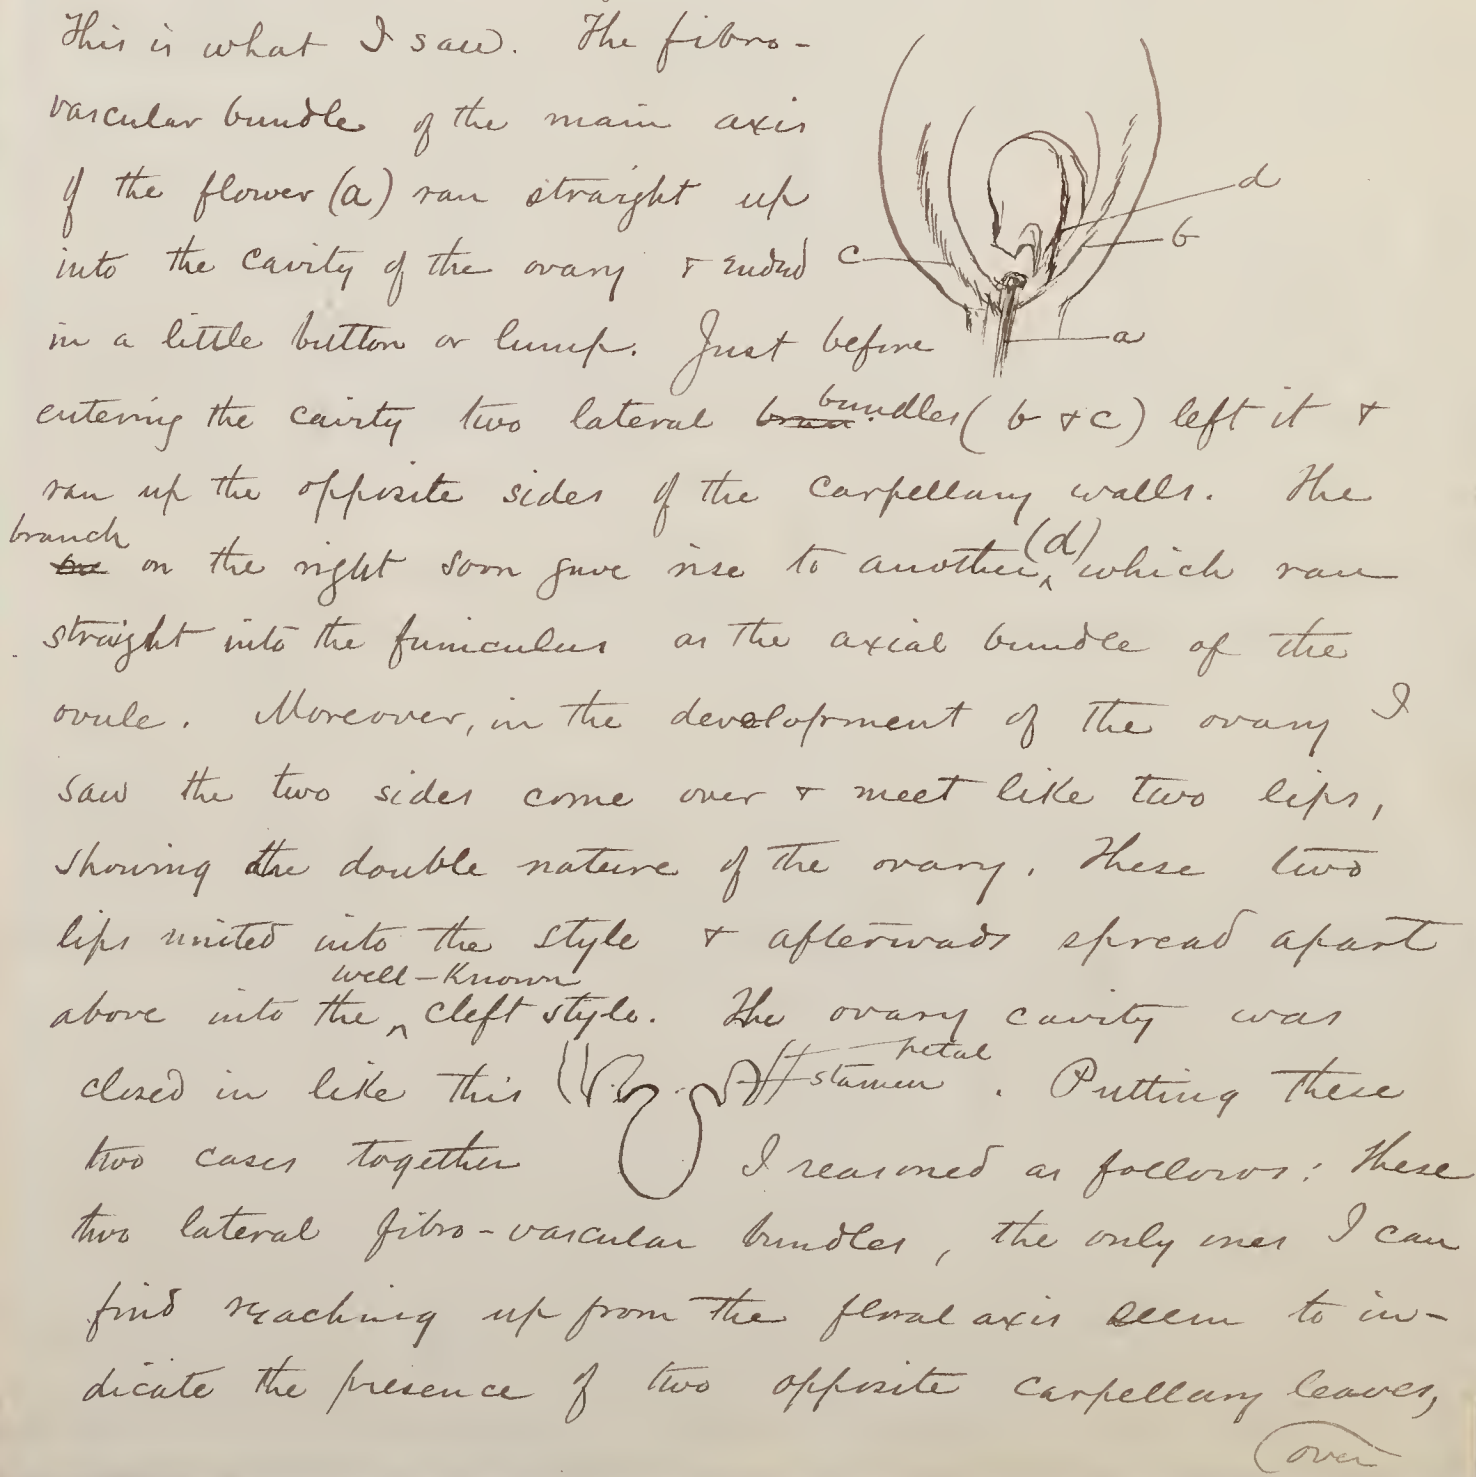 This is what I saw. The fibro-
vascular bundle of the main axis
of the flower (a) ran straight up
into the cavity of the ovary & ended
in a little button or lump. Just before
d
b
c
a
entering the cavity two lateral bran bundles (b & c) left it &
ran up the opposite sides of the carpellary walls. The
branch
one on the right soon gave rise to another ^ (d) which ran
straight into the funiculus as the axial bundle of the
ovule. Moreover, in the development of the ovary I
saw the two sides come over & meet like two lips,
showing the double nature of the ovary. These two
lips united into the style & afterwads spread apart
well-known
above into the ^ cleft style. The ovary cavity was
petal
closed in like this stamen . Putting these
two cases together I reasoned as follows: These
two lateral fibro-vascular bundles, the only ones I can
find reaching up from the floral axis seem to in-
dicate the presence of two opposite carpellary leaves,
(over